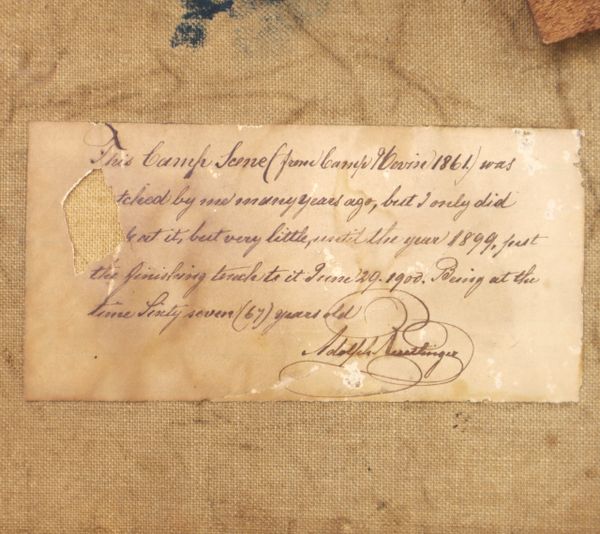 This Camp Scene (from Camp Nevin 1861.) was
tched by me many years ago, but I only did
at it, but very little, until the year 1899, put
the finishing touch to it June 29. 1900. Being at the
time Sixty seven (67) years old
Adolph